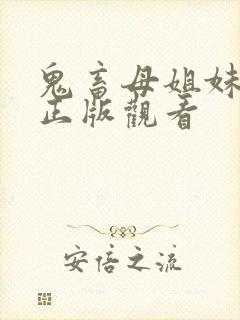 鬼畜母姐妹
正版觀看
安倍之流